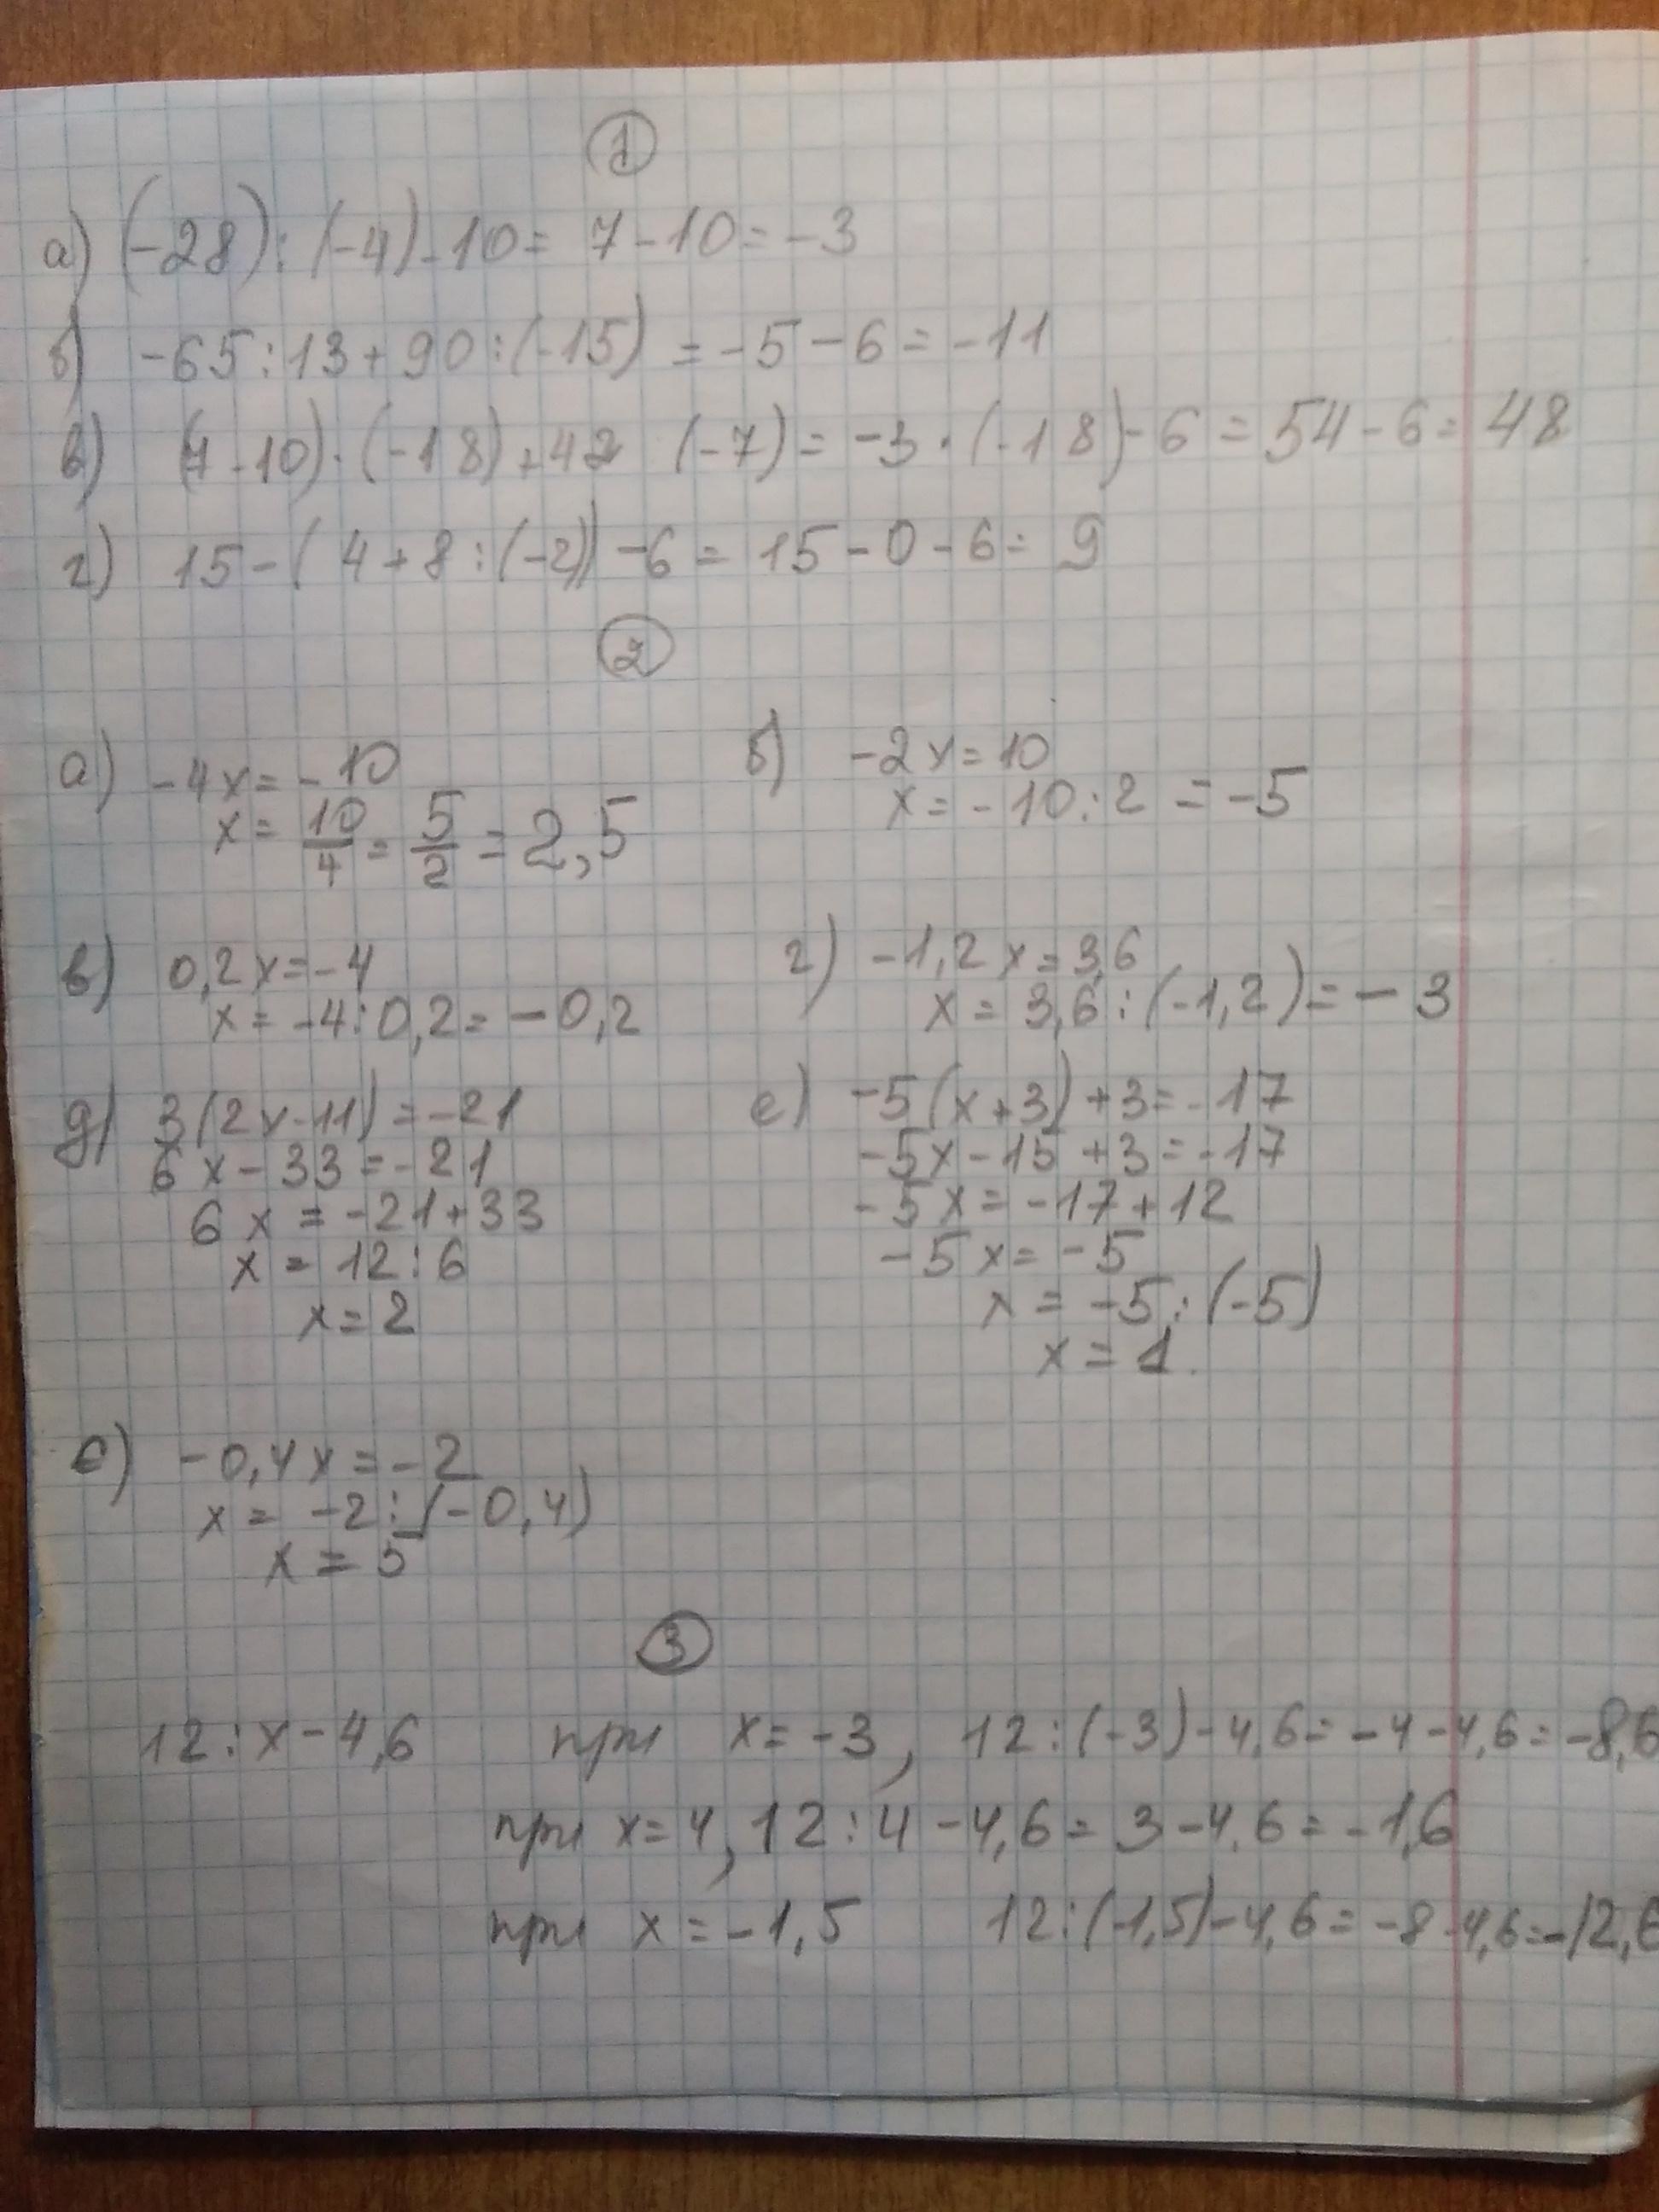 1
а) (-28) : (-4) - 10 = 7 - 10 = -3
б) -65 : 13 + 90 : (-15) = -5 - 6 = -11
в) (7 - 10) · (-18) + 42 (-7) = -3 · (-18) - 6 = 54 - 6 = 48
г) 15 - (4 + 8 : (-2)) - 6 = 15 - 0 - 6 = 9
2
а) -4x = -10
x = 10/4 = 5/2 = 2,5
б) -2x = 10
x = -10 : 2 = -5
в) 0,2x = -4
x = -4 : 0,2 = -0,2
г) -1,2x = 3,6
x = 3,6 : (-1,2) = -3
д) 3(2x - 11) = -21
6x - 33 = -21
6x = -21 + 33
x = 12 : 6
x = 2
е) -5(x + 3) + 3 = -17
-5x - 15 + 3 = -17
-5x = -17 + 12
-5x = -5
x = -5 : (-5)
x = 1
е) -0,4x = -2
x = -2 : (-0,4)
x = 5
3
12 : x - 4,6 при x = -3, 12 : (-3) - 4,6 = -4 - 4,6 = -8,6
при x = 4, 12 : 4 - 4,6 = 3 - 4,6 = -1,6
при x = -1,5 12 : (-1,5) - 4,6 = -8 - 4,6 = -12,6